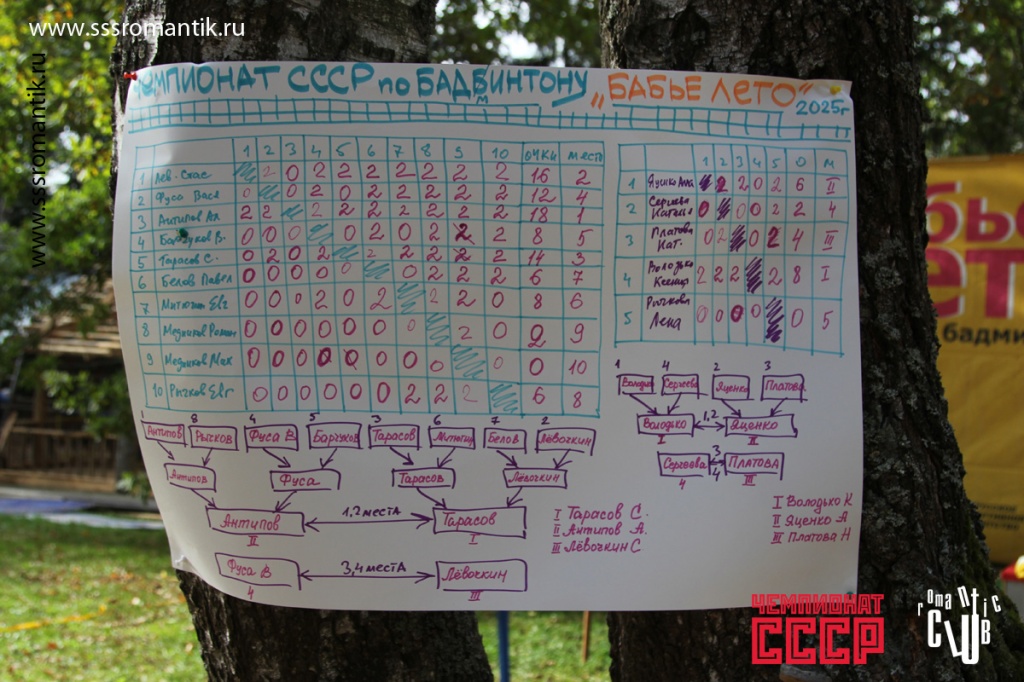 www.sssromantik.ru
www.sssromantik.ru
ЧЕМПИОНАТ СССР по БАДМИНТОНУ „БАБЬЕ ЛЕТО“
2025г
1 2 3 4 5 6 7 8 9 10 ОЧКИ МЕСТО
1 Лев. Стас 2 0 2 2 2 2 2 2 2 16 2
2 Фуса Вася 0 0 2 0 2 2 2 2 2 12 4
3 Антипов Ал 2 2 2 2 2 2 2 2 2 18 1
4 Боргуков В. 0 0 0 0 2 0 2 2 2 8 5
5 Тарасов С. 0 2 0 2 2 2 2 2 2 14 3
6 Белов Павел 0 0 0 0 0 0 2 2 2 6 7
7 Митюхин Евг 0 0 0 2 0 2 2 2 0 8 6
8 Медников Роман 0 0 0 0 0 0 0 2 0 2 9
9 Медников Мах 0 0 0 0 0 0 0 0 0 0 10
10 Рычков Евг 0 0 0 0 0 0 2 2 2 6 8
1 2 3 4 5 О М
1 Яценко Алла 2 2 0 2 6 II
2 Сергеева Наталья 0 0 0 2 2 4
3 Платова Нат. 0 2 0 2 4 III
4 Володько Ксения 2 2 2 2 8 I
5 Рычкова Лена 0 0 0 0 0 5
1 8 4 5 3 6 7 2
Антипов Рычков Фуса В Боргуков Тарасов Митюхин Белов Лёвочкин
Антипов Фуса Тарасов Лёвочкин
Антипов 1,2 места Тарасов
II I
Фуса В 3,4 места Лёвочкин
4 III
I Тарасов С.
II Антипов А.
III Лёвочкин С
1 4 2 3
Володько Сергеева Яценко Платова
Володько 1,2 Яценко
I II
Сергеева 3 4 Платова
4 III
I Володько К
II Яценко А
III Платова Н
бье
ет
бадми
ЧЕМПИОНАТ
СССР
romantic
CLUB